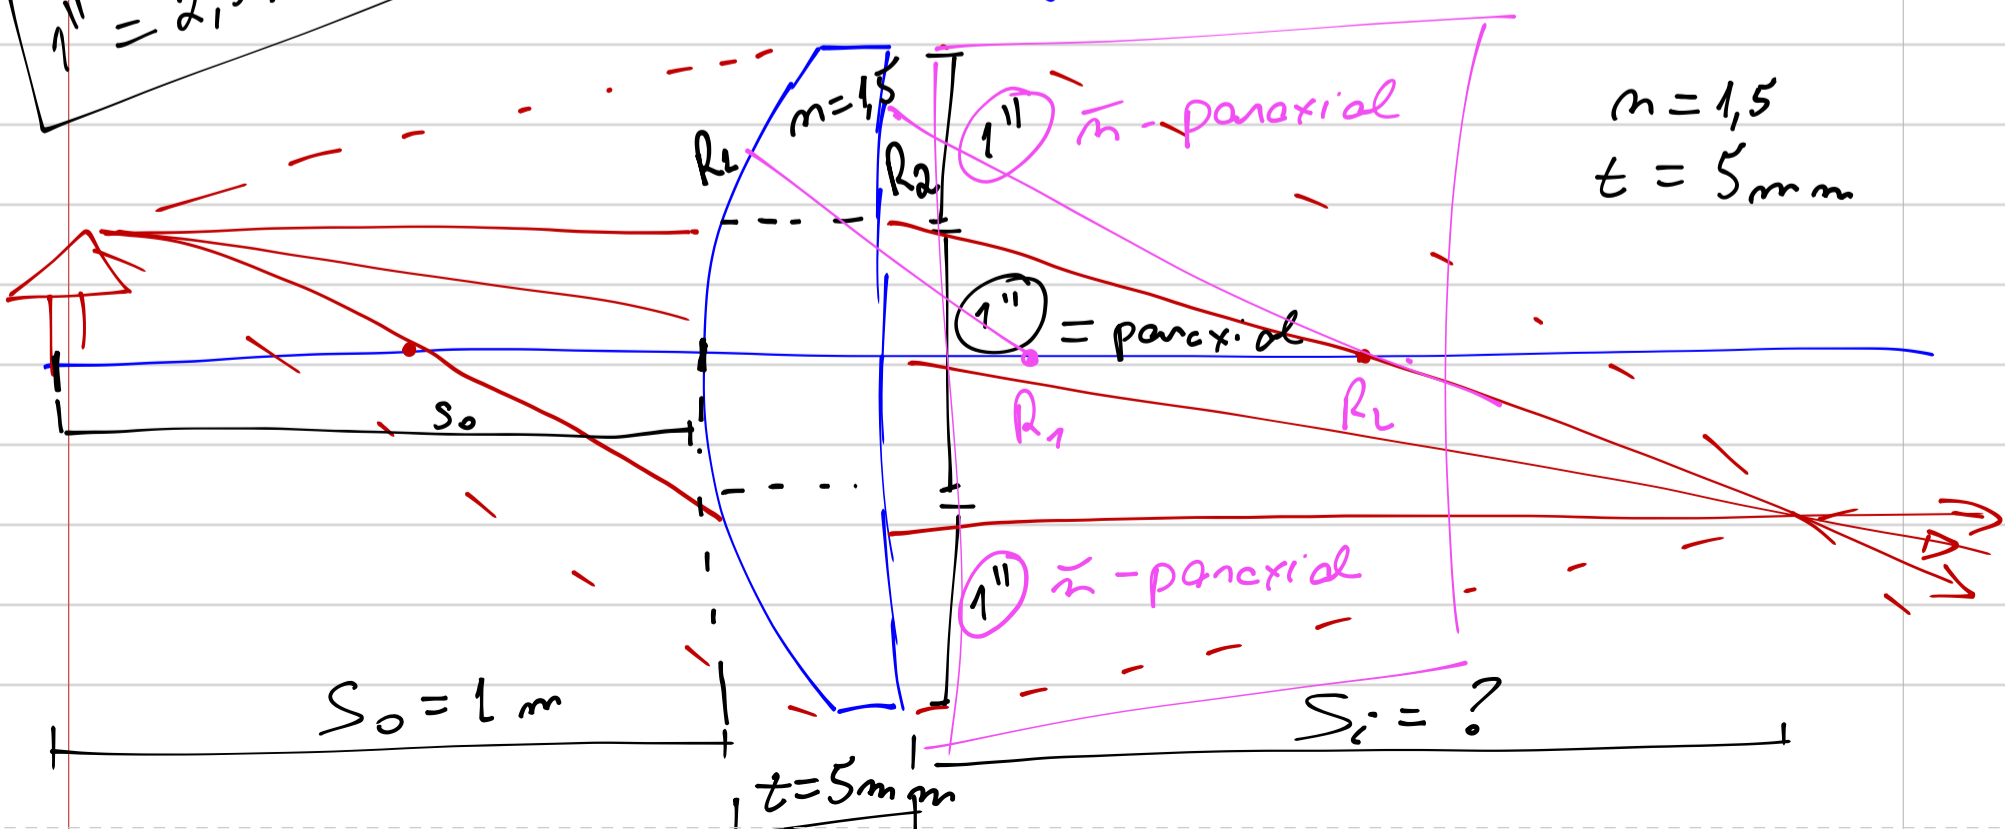 1" = 2,5
n=1,5
R1
R2
1"
ñ-paraxial
n = 1,5
t = 5mm
1"
= paraxial
R1
R2
So
1"
ñ-paraxial
So = 1 m
Si = ?
t=5mm